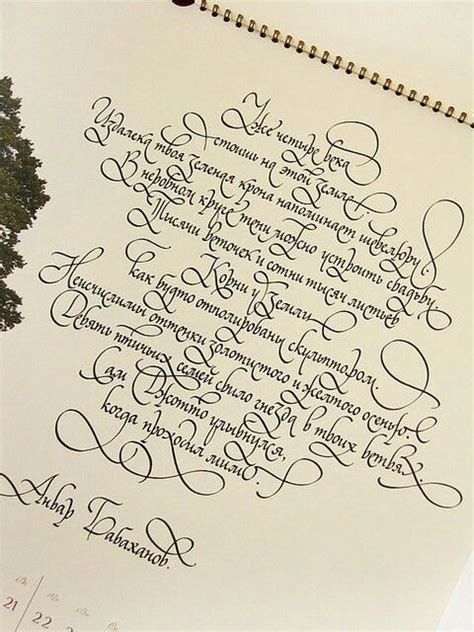 Уже четыре века
стоишь на этой земле.
Издалека твоя зеленая крона напоминает шевелюру.
В неровном круге тени можно устроить свадьбу.
Тысячи веточек и сотни тысяч листьев
Корни у земли
как будто отполированы скульптором.
Неисчислимы оттенки золотистого и желтого осенью.
Девять птичьих семей свило гнезда в твоих ветвях.
Сам Джотто улыбнулся,
когда проходил мимо.
Анвар Бабаханов.
21 22